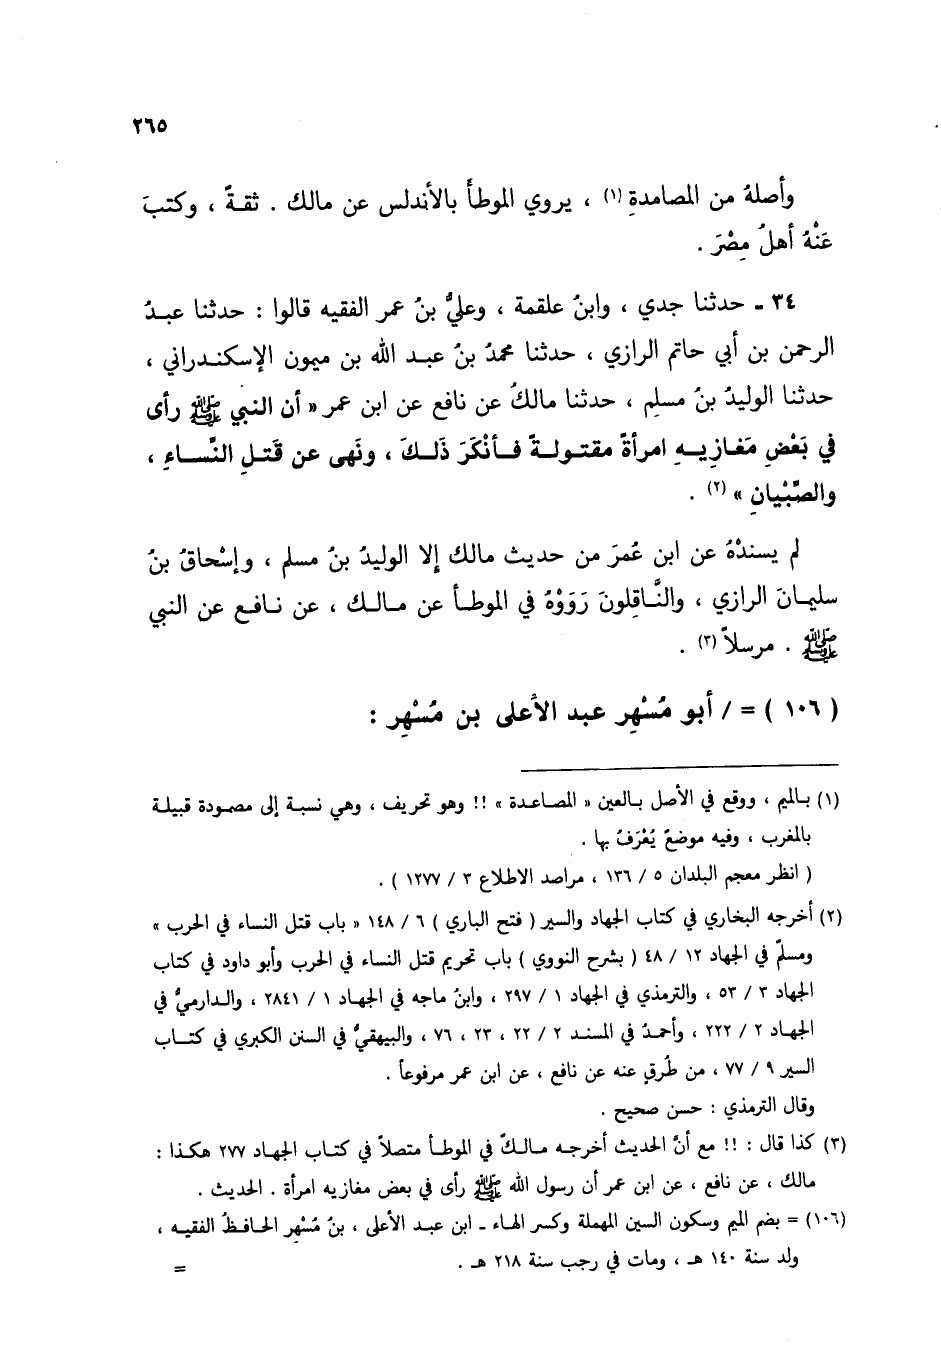 ٢٦٥
وأصلهُ من المصامدةِ (١) ، يروي الموطأَ بالأندلس عن مالك . ثقـةٌ ، وكتبَ
عَنْهُ أهلُ مِصْرَ .
٣٤ ـ حدثنا جدي ، وابنُ علقمة ، وعليُّ بنُ عمر الفقيه قالوا : حدثنا عبـدُ
الرحمن بن أبي حاتم الرازي ، حدثنا محمدُ بنُ عبـد الله بن ميمون الإسكنـدراني ،
حدثنا الوليدُ بنُ مسلم ، حدثنا مالكُ عن نافع عن ابن عمر « أن النبي ﷺ رأى
في بَعْضِ مَغـازِيـهِ امرأةً مقتـولـةً فـأنْكَرَ ذَلـكَ ، ونَهى عن قَتـلِ النِّسـاءِ ،
والصِّبْيانِ » (٢) .
لم يسندْهُ عن ابن عُمرَ من حديث مالك إلا الوليدُ بنُ مسلم ، وإسْحاقُ بنُ
سليمـانَ الرازي ، والنَّـاقِلونَ رَوَوْهُ في الموطـأ عن مـالـك ، عن نـافـع عن النبي
ﷺ . مرسلاً (٣) .
( ١٠٦ ) = / أبو مُسْهِر عبد الأعلى بن مُسْهِر :
(١) بـالميم ، ووقع في الأصل بـالعين « المصـاعدة » !! وهو تحريف ، وهي نسبـة إلى مصمودة قبيلـة
بالمغرب ، وفيه موضعٌ يُعْرَفُ بها .
( انظر معجم البلدان ٥ / ١٣٦ ، مراصد الاطلاع ٣ / ١٢٧٧ ) .
(٢) أخرجه البخاري في كتاب الجهاد والسير ( فتح الباري ) ٦ / ١٤٨ « باب قتل النساء في الحرب »
ومسلمٌ في الجهاد ١٢ / ٤٨ ( بشرح النووي ) باب تحريم قتل النساء في الحرب وأبو داود في كتاب
الجهاد ٣ / ٥٣ ، والترمذي في الجهاد ١ / ٢٩٧ ، وابنُ ماجه في الجهـاد ١ / ٢٨٤١ ، والـدارميُّ في
الجهـاد ٢ / ٢٢٢ ، وأحمـدُ في المسنـد ٢ / ٢٢ ، ٢٣ ، ٧٦ ، والبيهقيُّ في السنن الكبري في كتـاب
السير ٩ / ٧٧ ، من طُرقٍ عنه عن نافع ، عن ابن عمر مرفوعاً .
وقال الترمذي : حسن صحيح .
(٣) كذا قال : !! مع أنَّ الحديث أخرجـه مـالـكٌ في الموطـأ متصلاً في كتـاب الجهاد ٢٧٧ هكـذا :
مالك ، عن نافع ، عن ابن عمر أن رسول الله ﷺ رأى في بعض مغازيه امرأة . الحديث .
(١٠٦) = بضم الميم وسكون السين المهملة وكسر الهاء ـ ابن عبد الأعلى ، بنُ مُسْهِر الحـافظُ الفقيـه ،
ولد سنة ١٤٠ هـ ، ومات في رجب سنة ٢١٨ هـ .
=